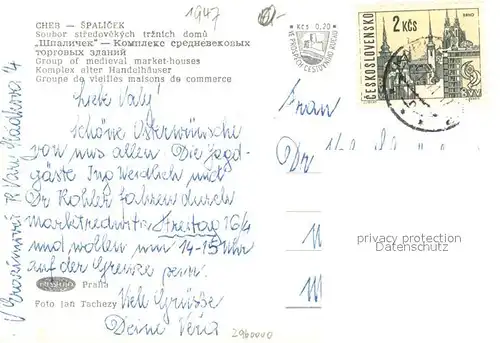 1947
CHEB — ŠPALÍČEK
Soubor středověkých tržních domů
„Шпаличек" — Комплекс средневековых
торговых зданий
Group of medieval market-houses
Komplex alter Handelhäuser
Groupe de vieilles maisons de commerce
Kčs 0,20
2 Kčs
BRNO
ČESKOSLOVENSKO
Liebe Valy!
Schöne Osterwünsche
von uns allen. Die Jagd-
gäste Ing Weidlich und
Dr Kohler fahren durch
Marktredwitz Freitag 16/4
und wollen um 14-15 Uhr
auf der Grenze sein.
Viele Grüsse
Deine Věra
Praha
Foto Jan Tachezy
2960000
Frau
Dr
privacy protection
Datenschutz